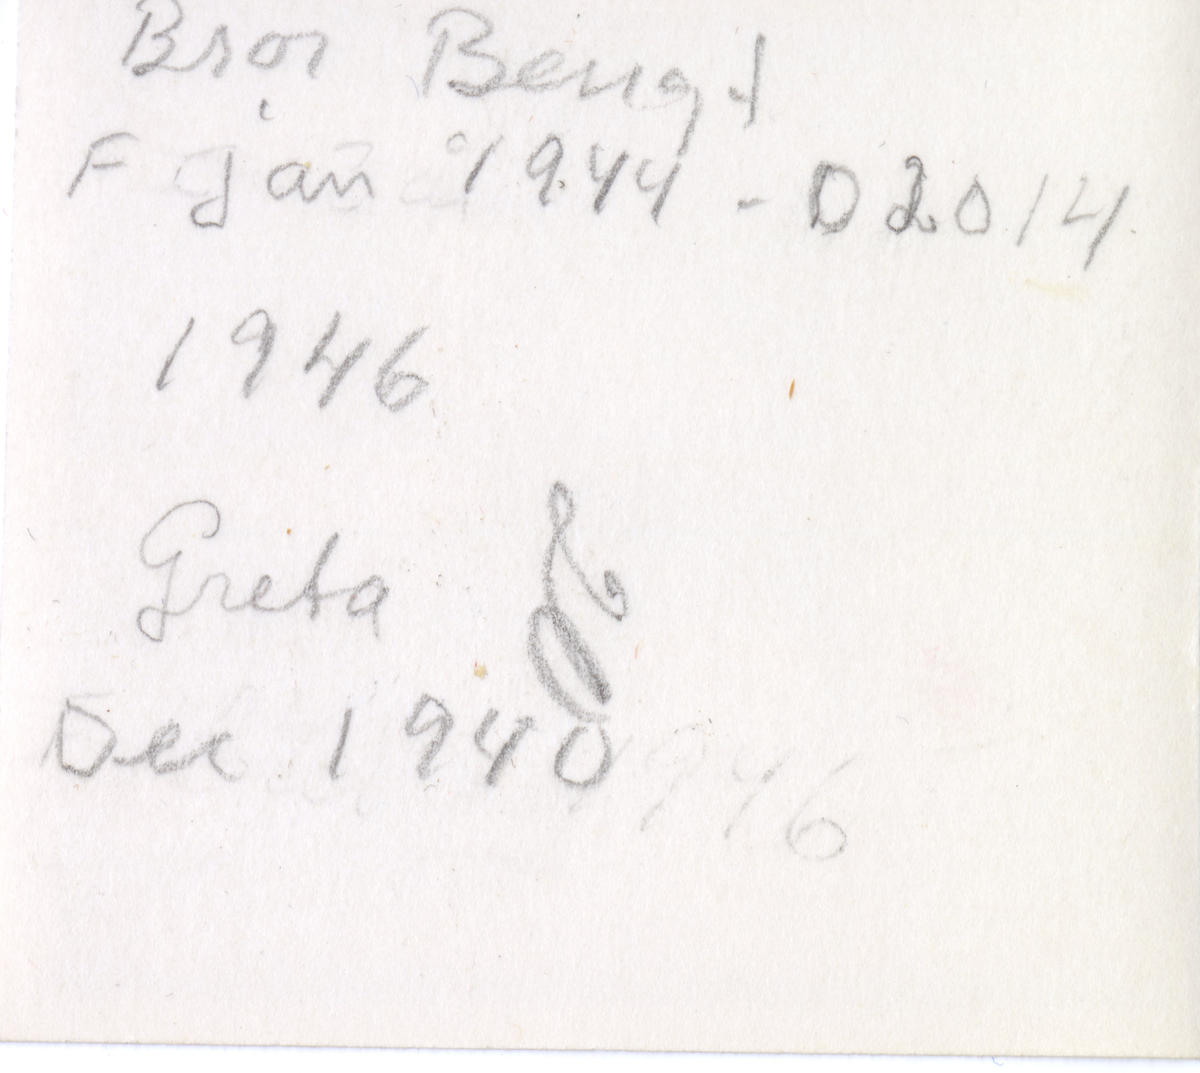 Bror Bengt
F jan 1944 - D 2014
1946
Greta
Dec 1940
1946